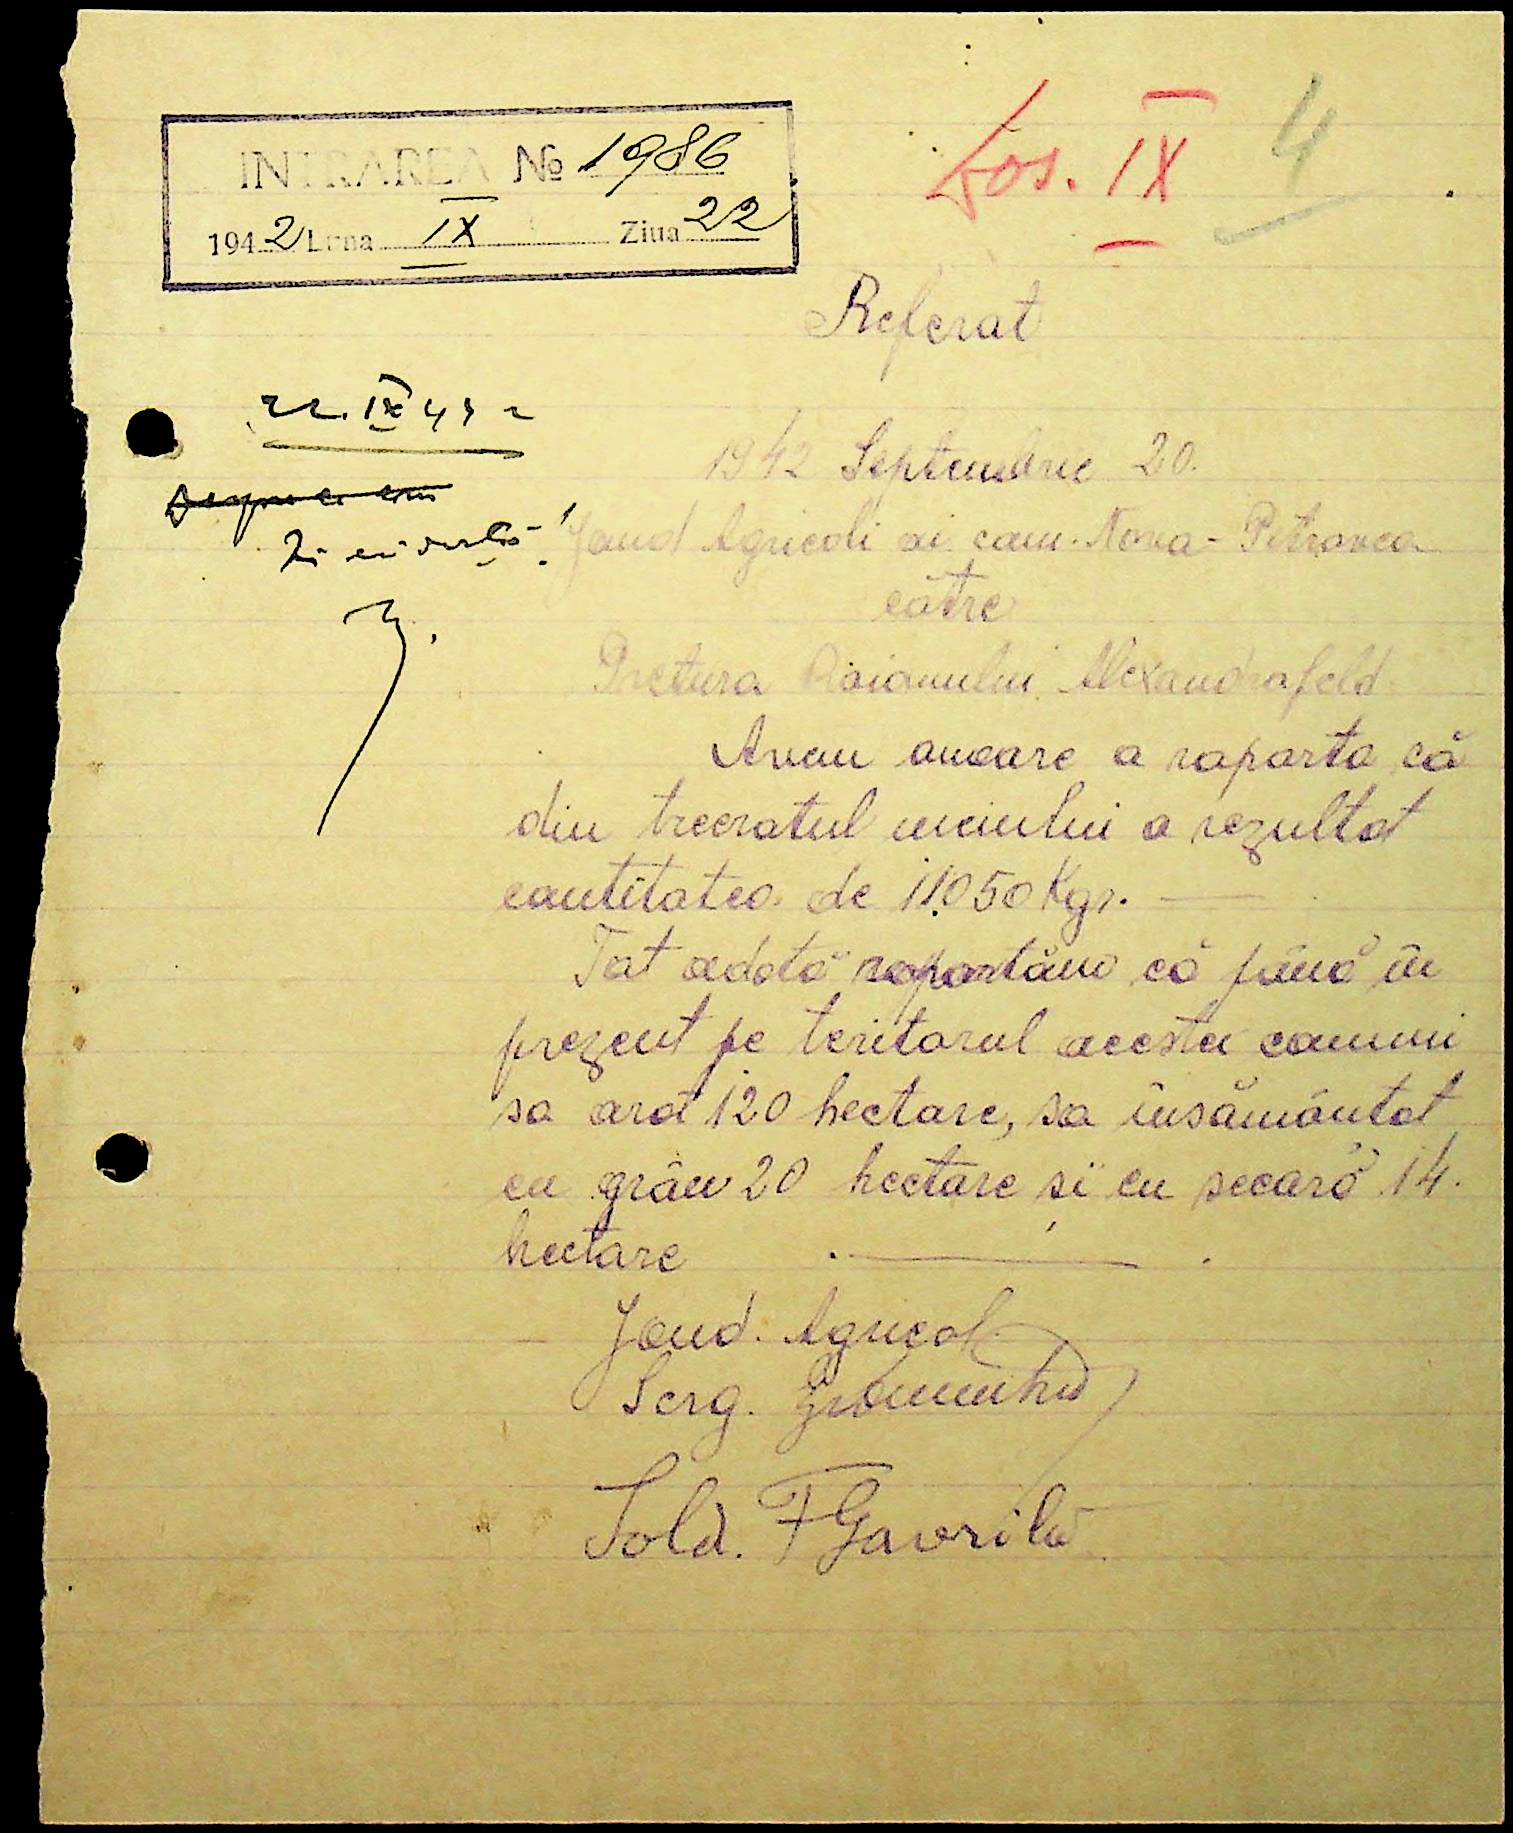 INTRAREA № 1986
1942 Luna IX Ziua 22
Dos. IX 4
Referat
22.IX 942
1942 Septembrie 20.
În evidență!
Jand Agricoli ai com. Nova-Petrovca
către
Pretura Raionului Alexandrafeld
Avem onoare a raporta că
din treeratul meiului a rezultat
cantitatea de 11050 Kgr.
Tot odată raportăm că până în
prezent pe teritorul acestei comuni
sa arat 120 hectare, sa însămânțat
cu grâu 20 hectare si cu secară 14.
hectare
Jand. Agricol
Serg.
Sold. F Gavrilă